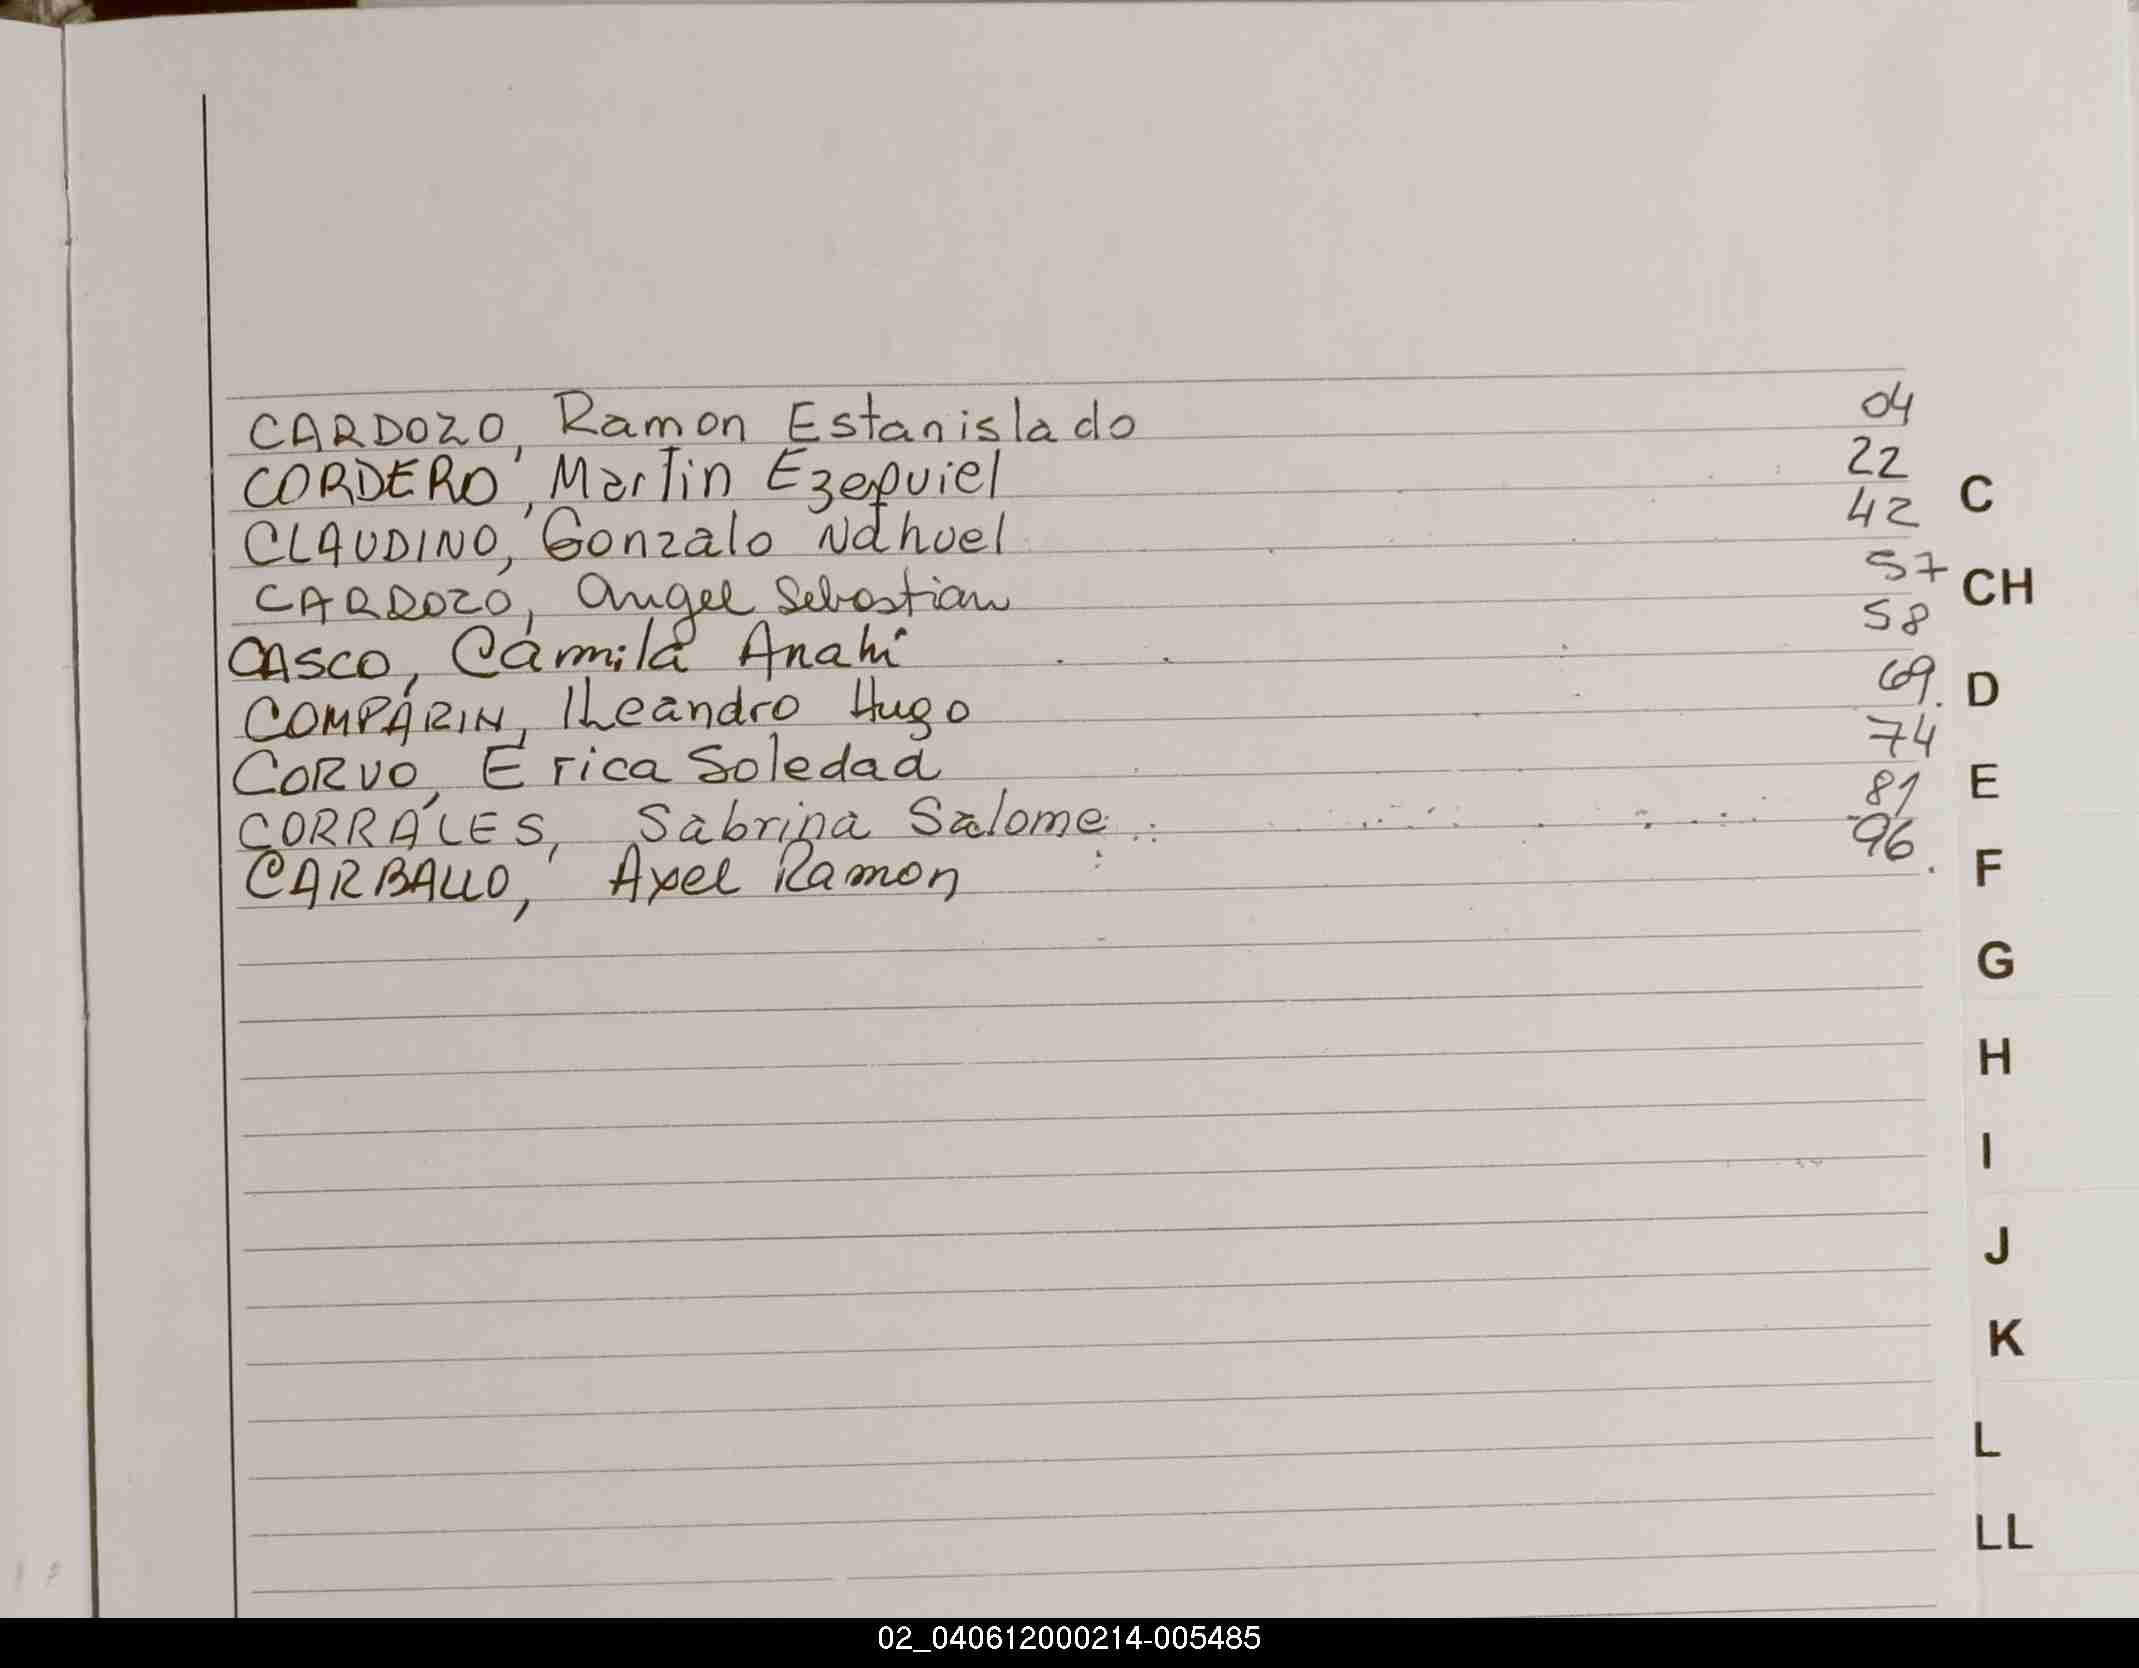 CARDOZO, Ramon Estanislado 04
CORDERO, Martin Ezequiel 22
CLAUDINO, Gonzalo Nahuel 42
CARDOZO, Angel Sebastian 57
CASCO, Camila Anahi 58
COMPARIN, Leandro Hugo 69.
CORVO, Erica Soledad 74
CORRALES, Sabrina Salome 81
CARBALLO, Axel Ramon 96.
C
CH
D
E
F
G
H
I
J
K
L
LL
02_040612000214-005485